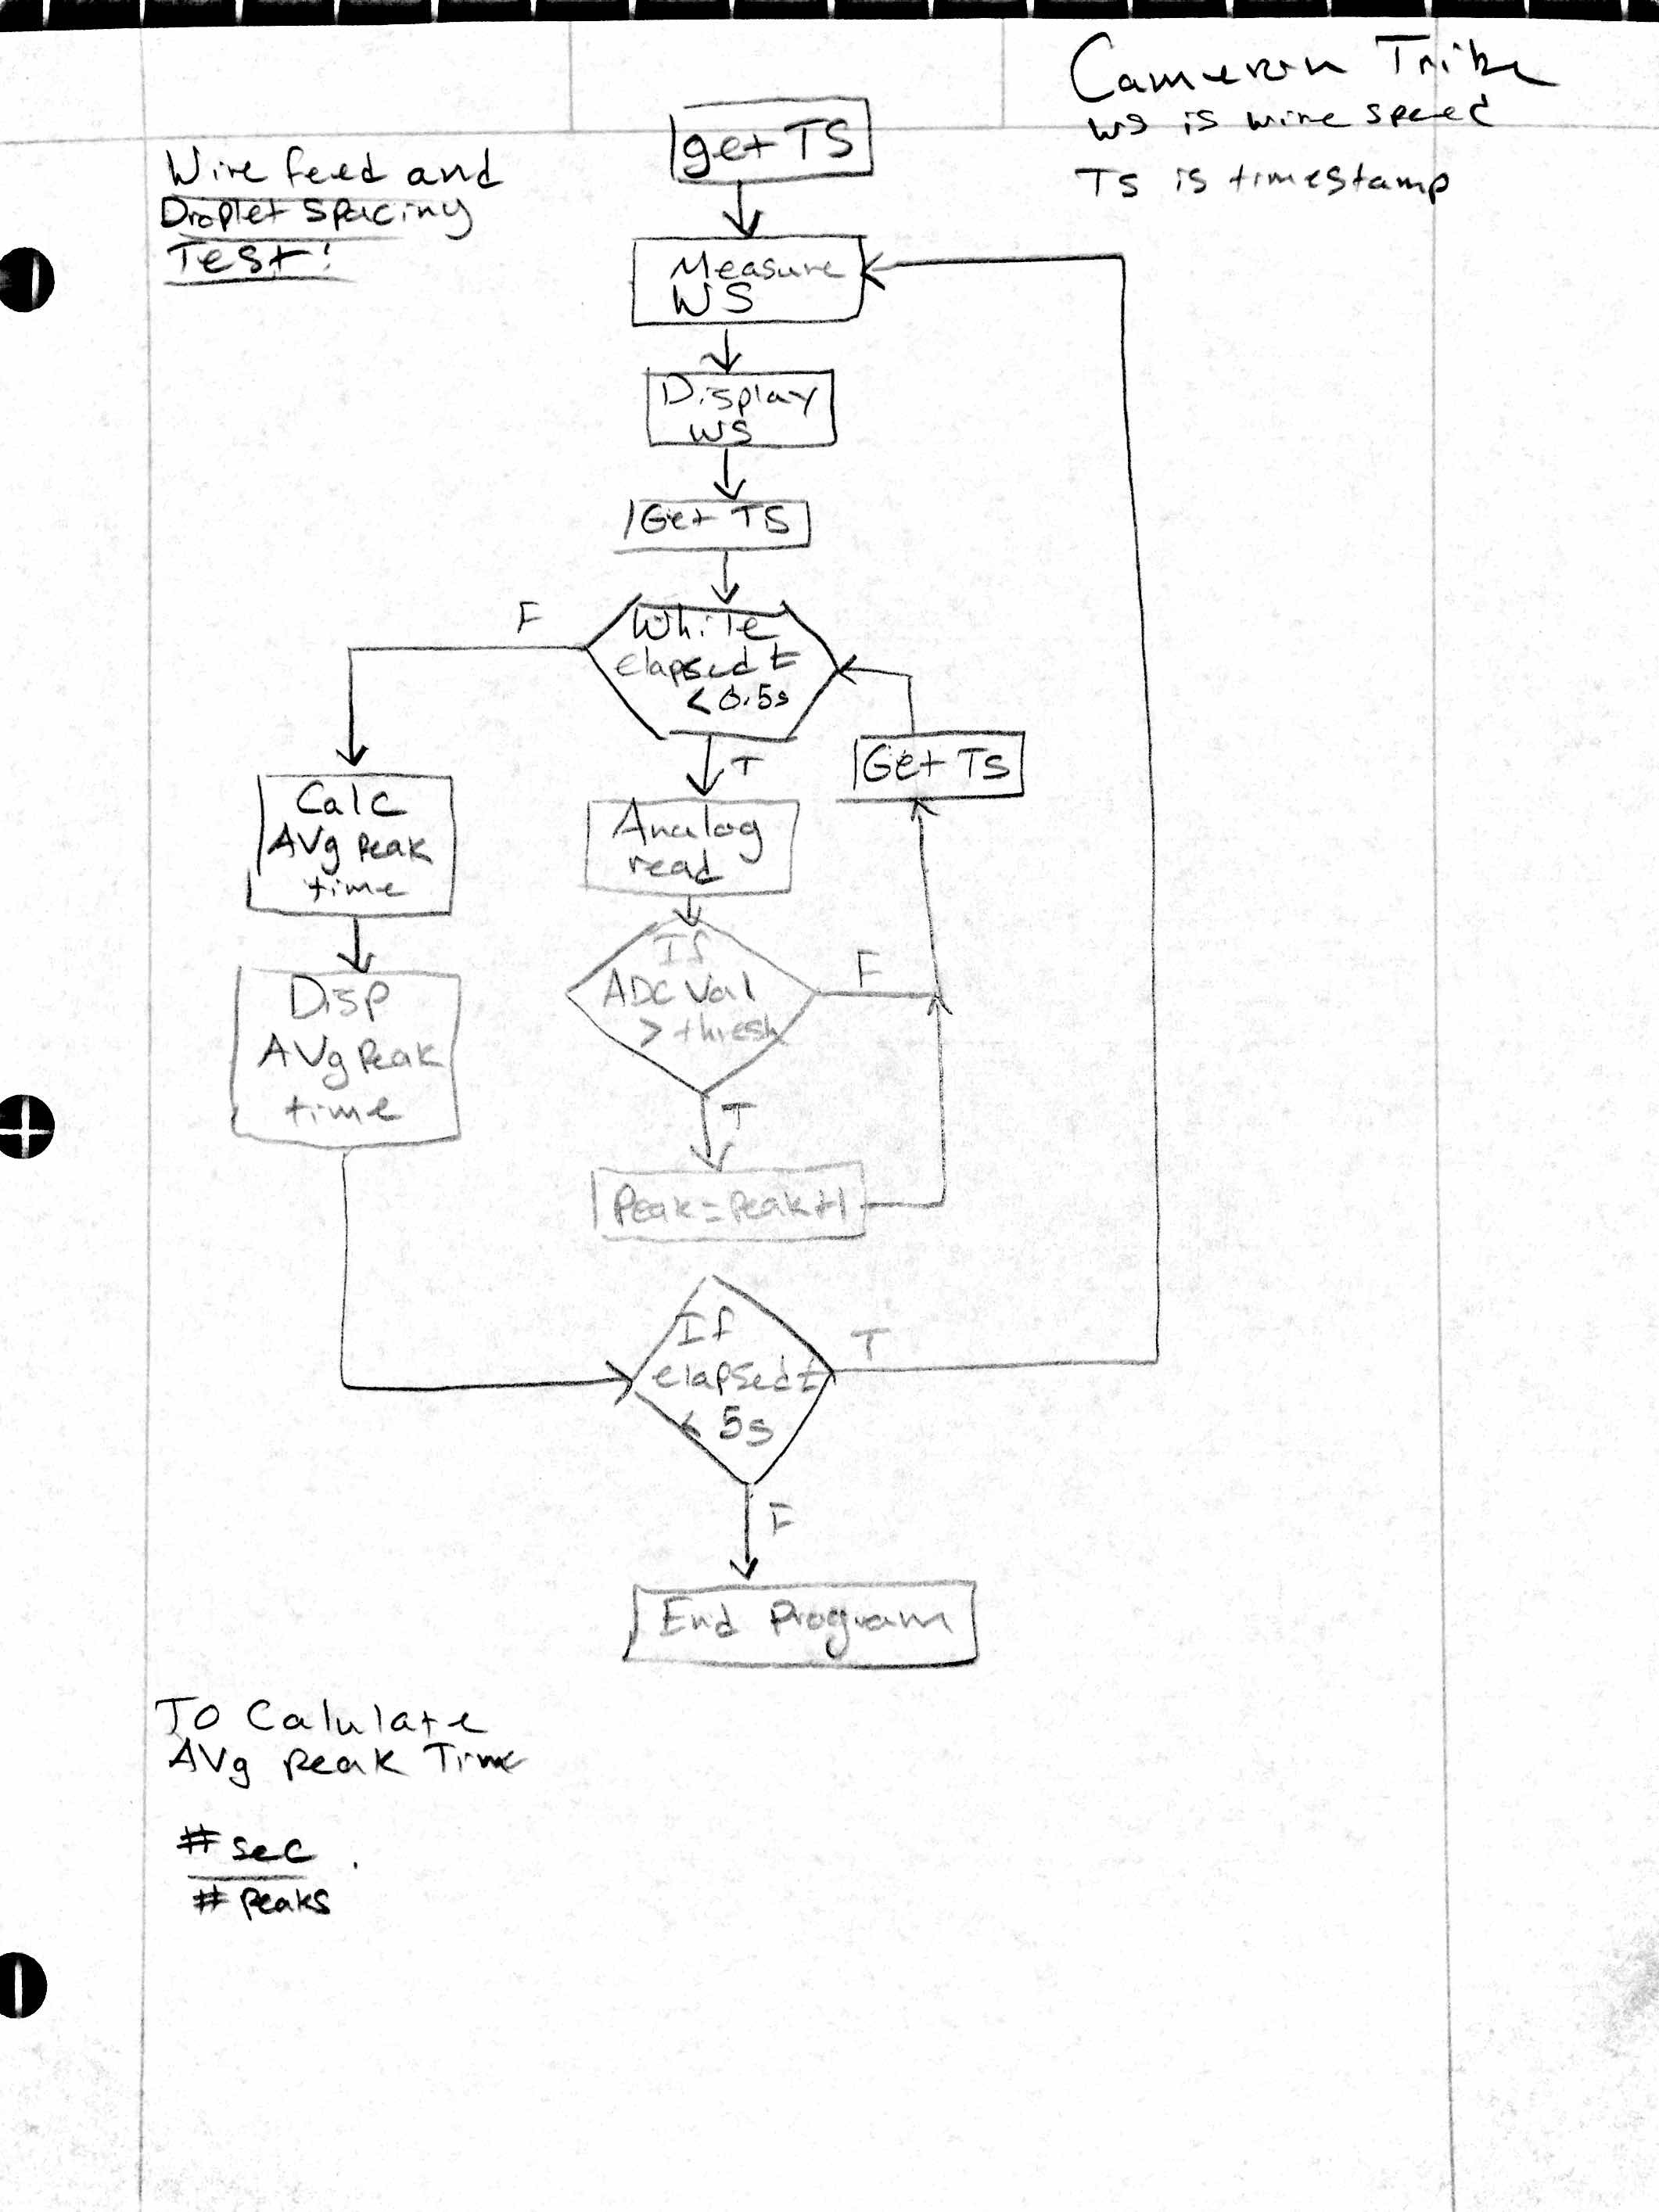 Cameron
ws is wire speed
TS is timestamp
Wire feed and
Droplet Spacing
Test:
get TS
Measure
WS
Display
WS
Get TS
While
elapsed t
< 0.5s
F
T
Get TS
Calc
AVg Peak
time
Analog
read
If
ADC Val
> thresh
F
T
Disp
AVg Peak
time
Peak = Peak+1
If
elapsed t
< 5s
T
F
End Program
To Calulate
AVg peak Time
# sec
# peaks